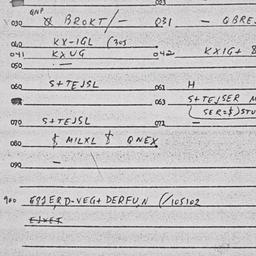 QNP 023
030 & BROKT/- 031 - QBRE
040 KX-IGL (305
041 KXUG 042 KXIG+ 8
050 -
060 S+TEJSL 061 H
063 S+TEJSER M
SER=$)STU
070 S+TEJSL 072 -
$ MILXL $ QNEX
080
-
090
900 DERD-VEG+ DERFUN (/105102